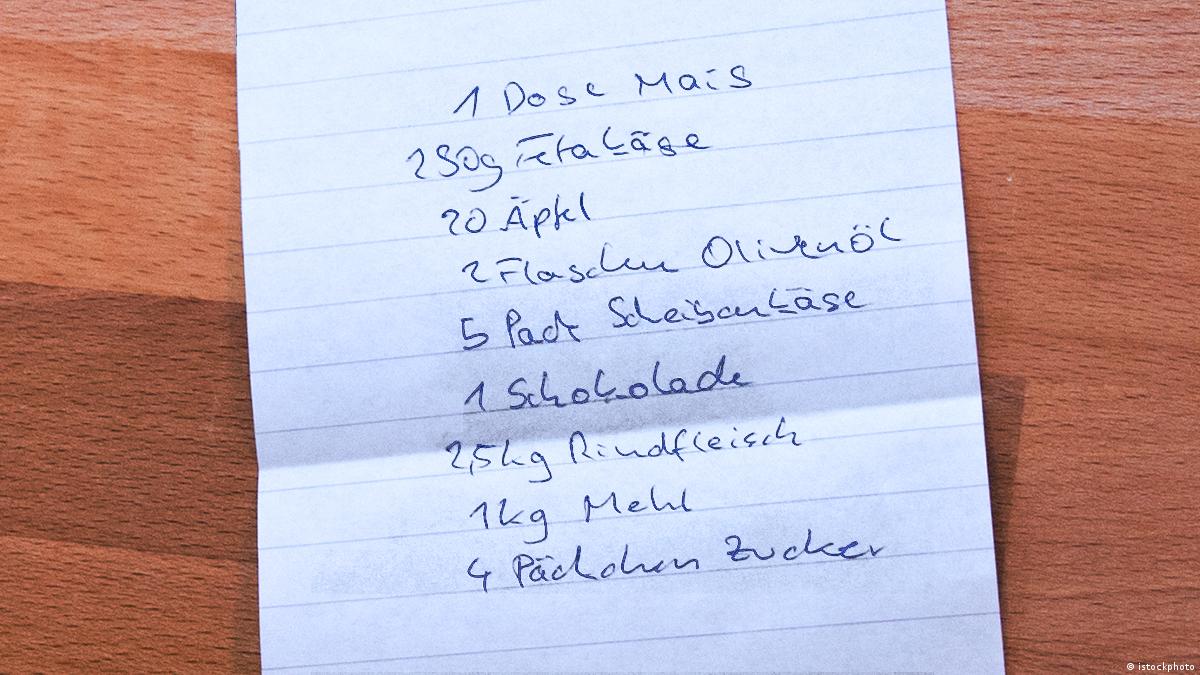 1 Dose Mais
250g Fetakäse
20 Äpfel
2 Flaschen Olivenöl
5 Pack Scheibenkäse
1 Schokolade
2,5kg Rindfleisch
1kg Mehl
4 Päckchen Zucker
© istockphoto